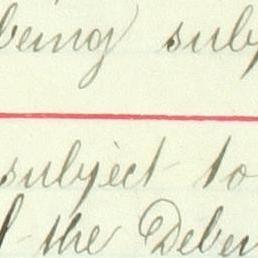 being subj
subject to
the Deben